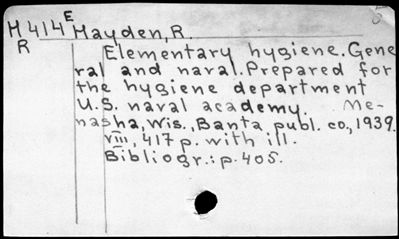 H414E Hayden, R.
R
Elementary hygiene. Gene
ral and naval. Prepared for
the hygiene department
U.S. naval academy. Me-
nasha, Wis., Banta publ. co., 1939.
VIII, 417 p. with ill.
Bibliogr.: p. 405.